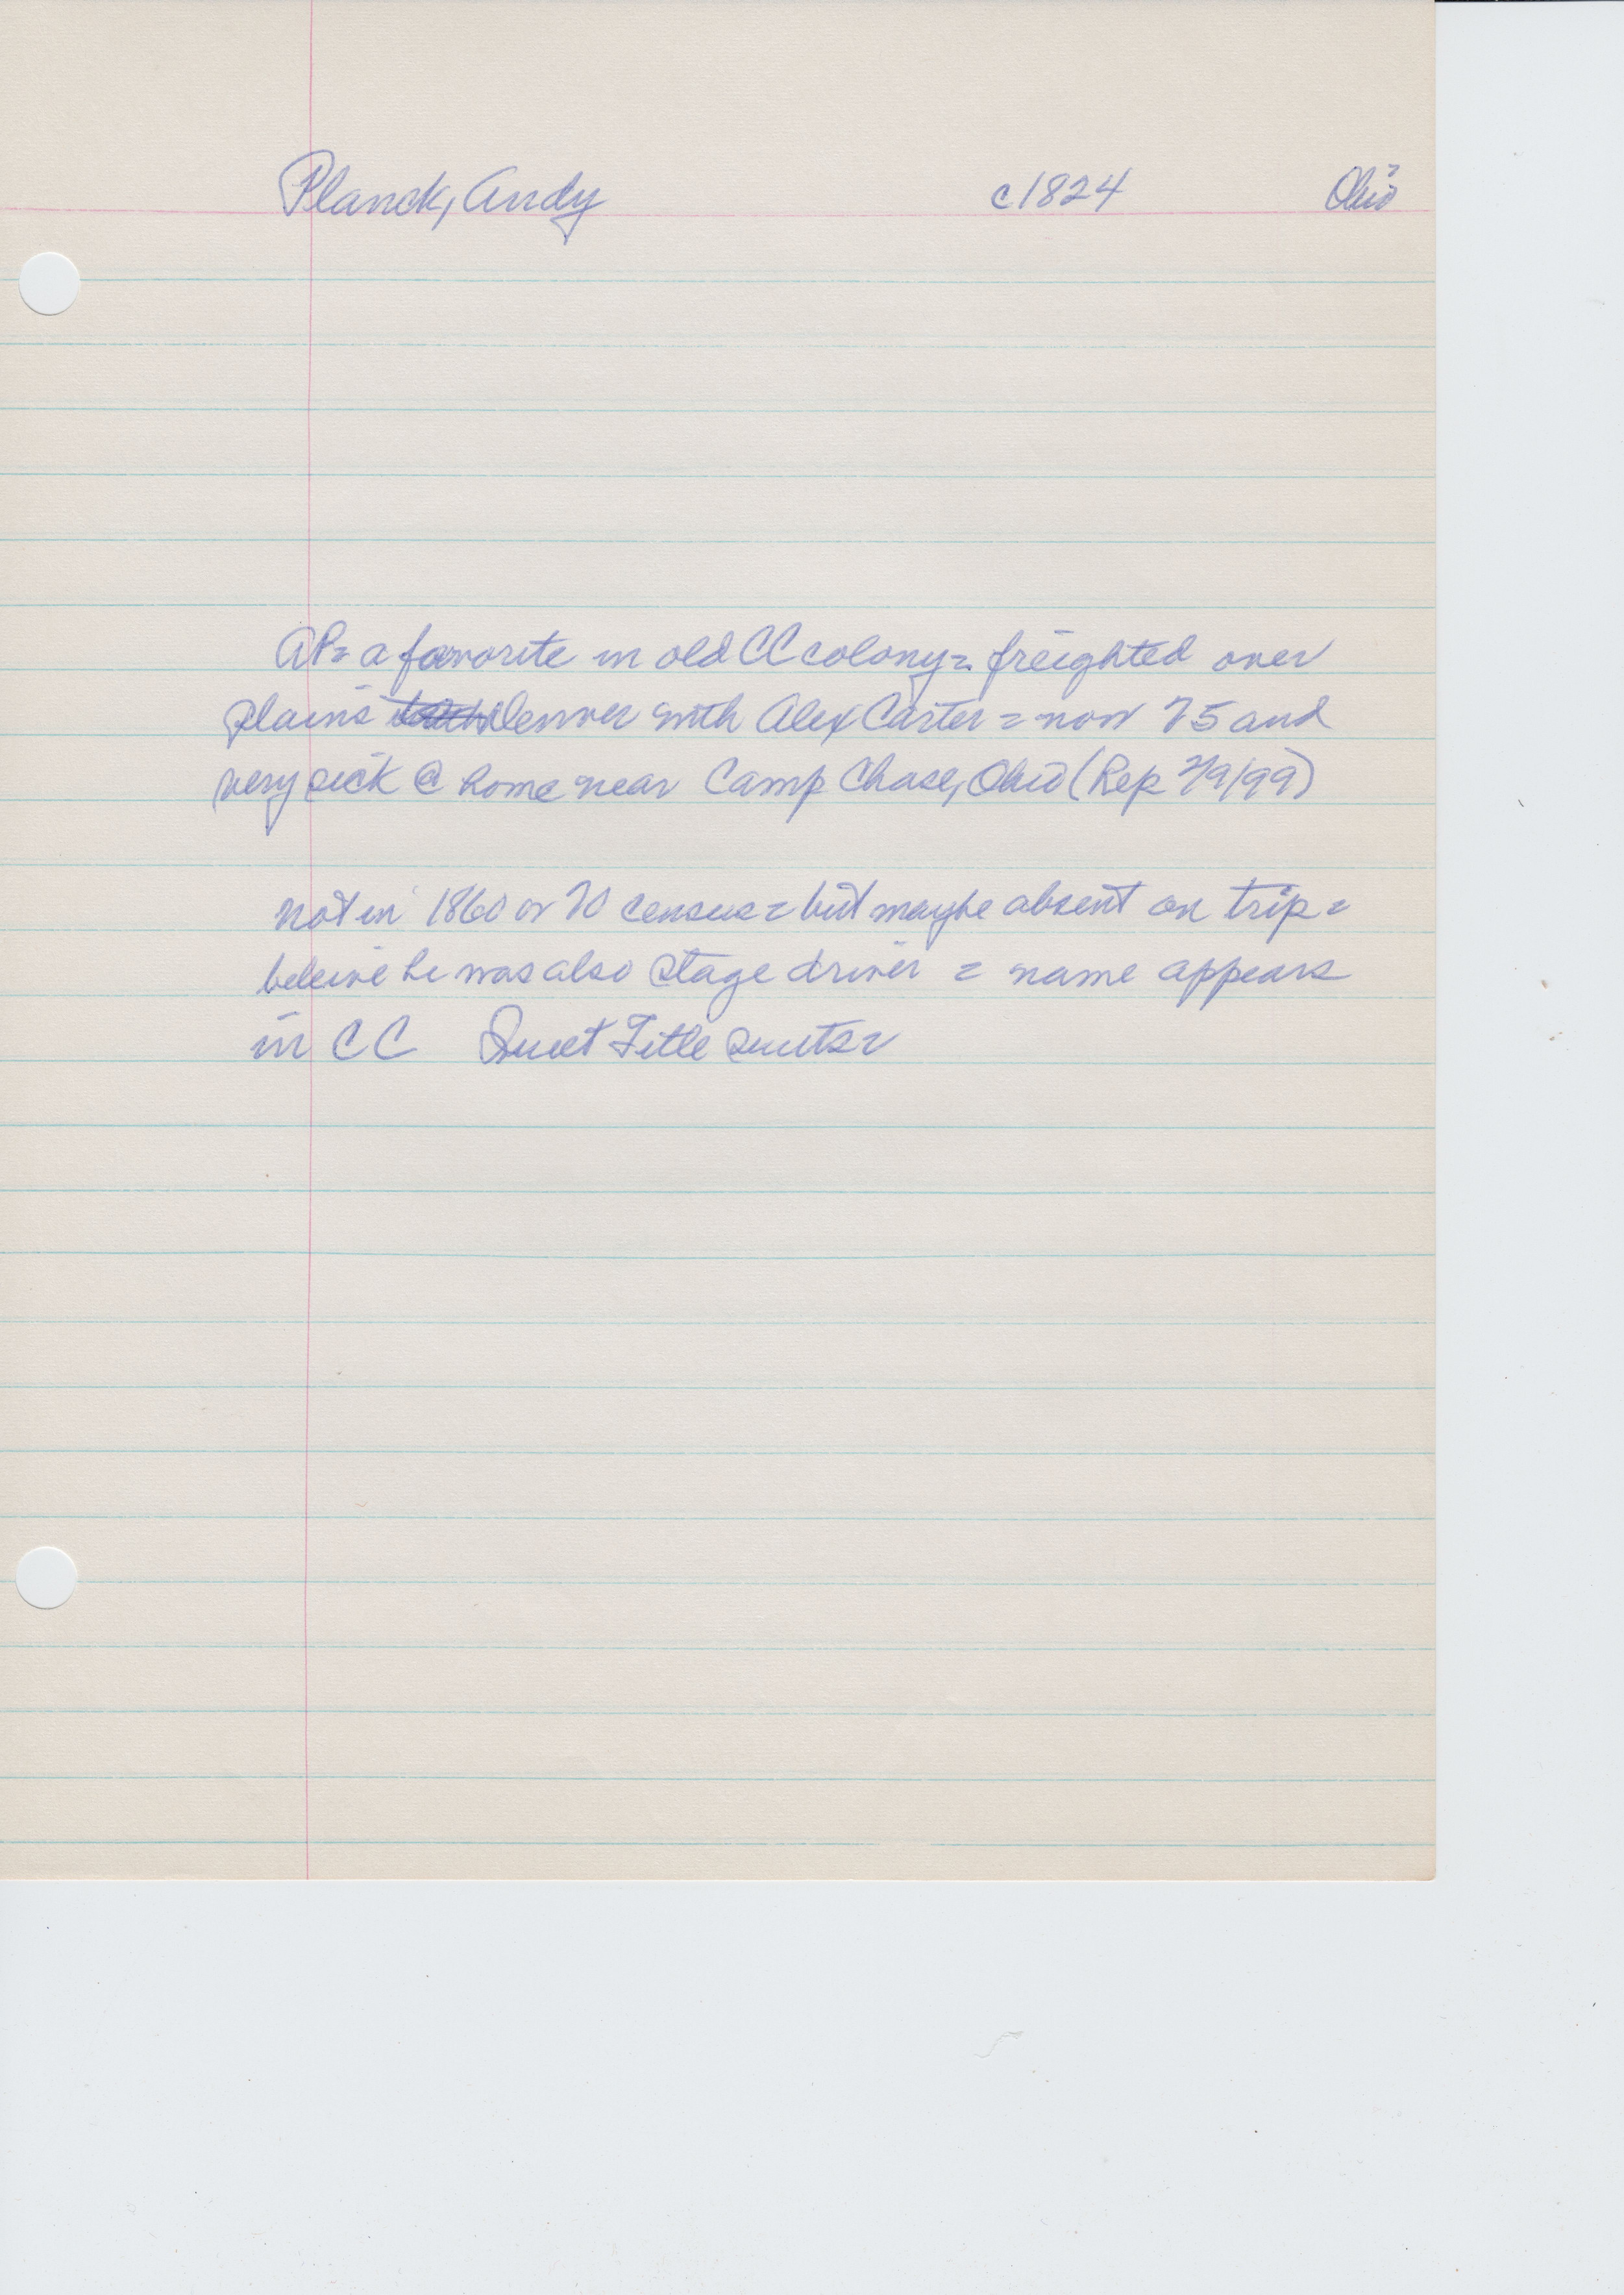 Planck, Andy c1824 Ohio
AP= a favorite in old CC colony= freighted over
plains Denver with Alex Carter = now 75 and
very sick @ home near Camp Chase, Ohio (Rep 2/9/99)
not in 1860 or 70 census= but maybe absent on trip=
beleive he was also stage driver = name appears
in CC Quiet Title suits=